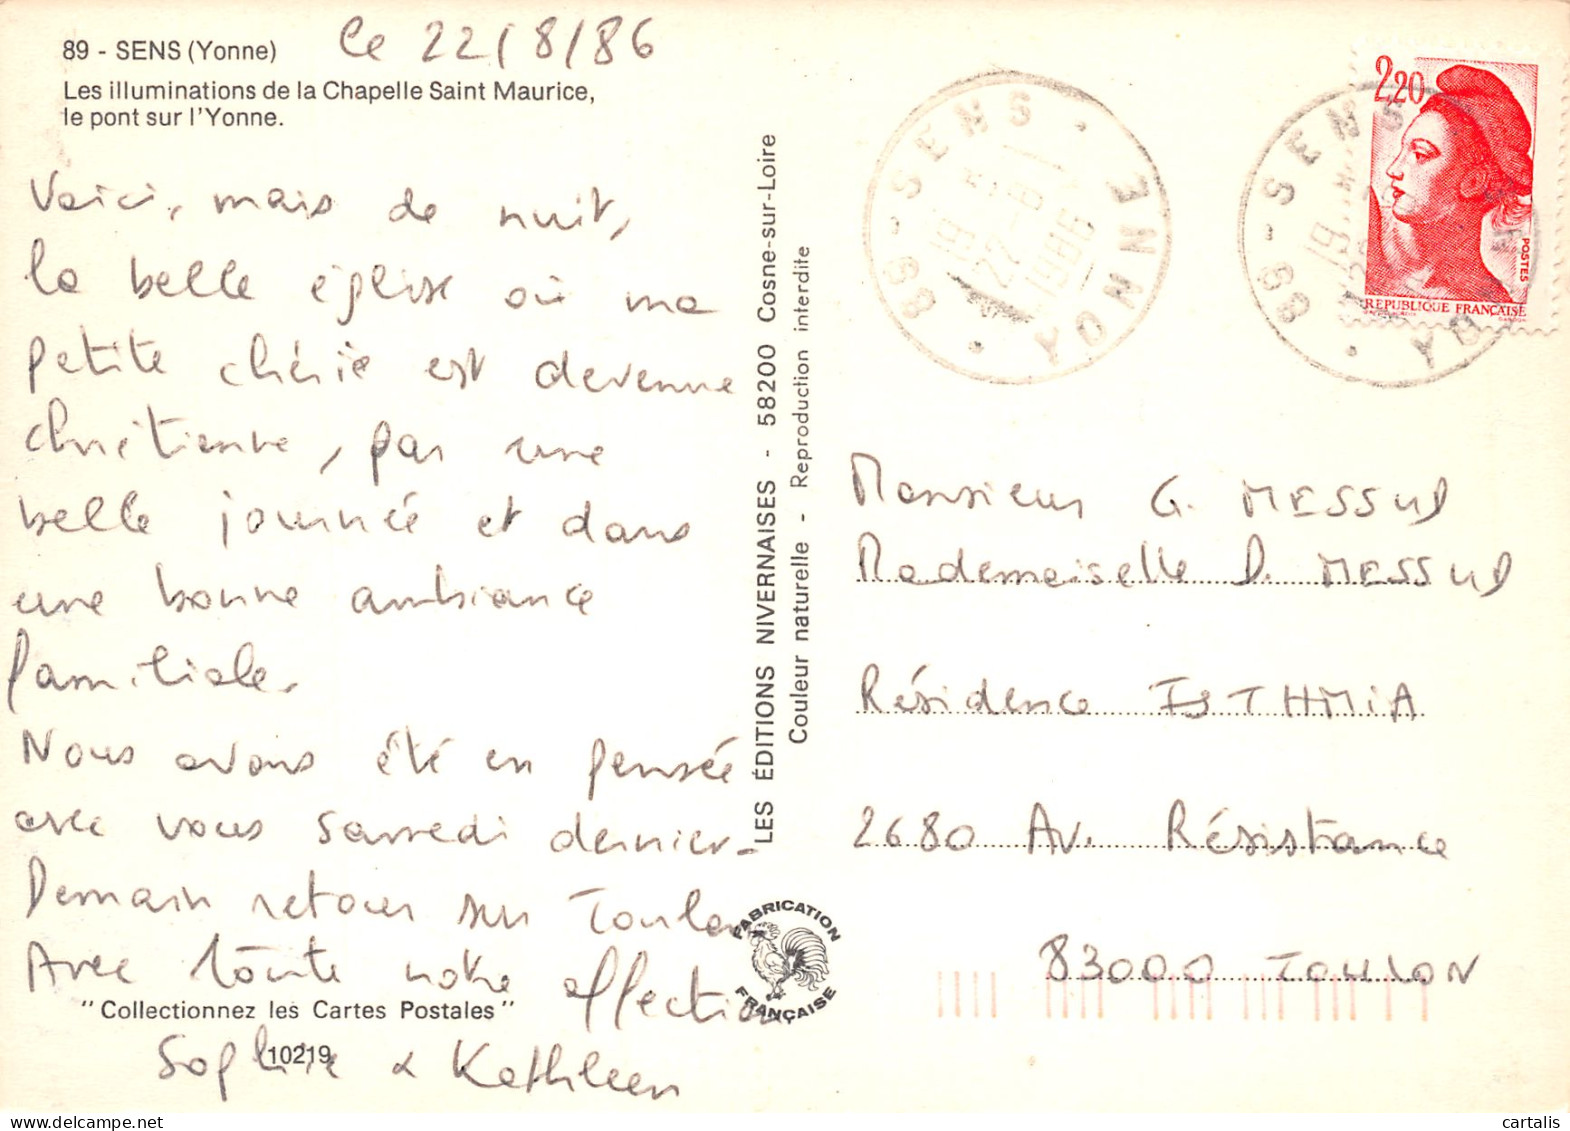 89 - SENS (Yonne)
Le 22/8/86
Les illuminations de la Chapelle Saint Maurice,
le pont sur l'Yonne.
Voici, mais de nuit,
la belle église où ma
petite chérie est devenue
chrétienne, par une
belle journée et dans
une bonne ambiance
familiale.
Nous avons été en pensée
avec vous samedi dernier.
Demain retour sur Toulon
Avec toute notre affection
"Collectionnez les Cartes Postales"
Sophie & Kathleen
10219
LES ÉDITIONS NIVERNAISES - 58200 Cosne-sur-Loire
Couleur naturelle - Reproduction interdite
FABRICATION
FRANÇAISE
89 - SENS · YONNE ·
19 H
22 - 8
1986
89 - SENS
YONNE
19 H
2,20
POSTES
REPUBLIQUE FRANÇAISE
Monsieur G. MESSUD
Mademoiselle D. MESSUD
Résidence ISTHMIA
2680 Av. Résistance
83000 TOULON
cartalis